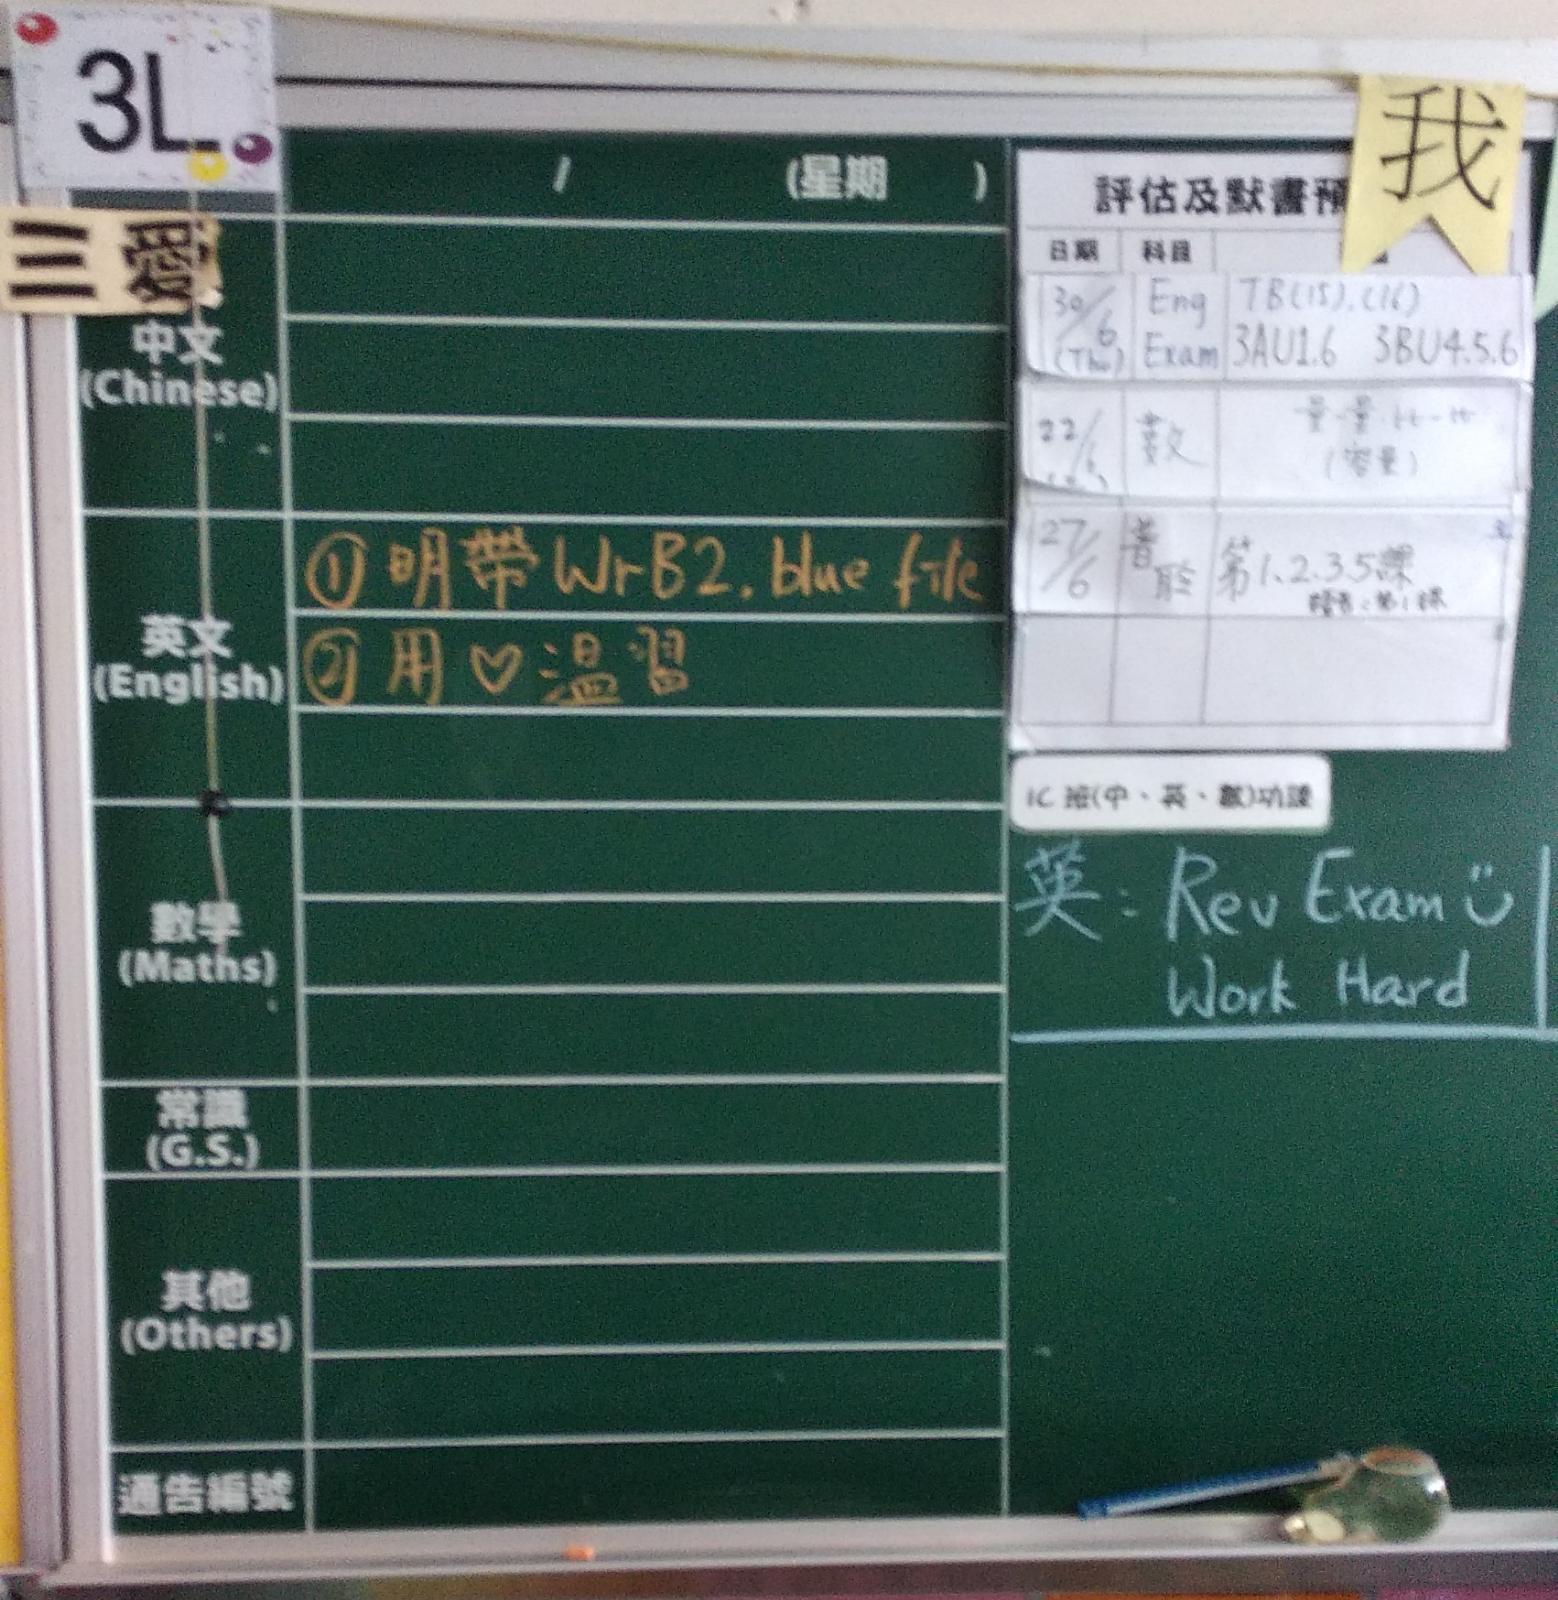 3L
三 愛
/ (星期 )
中文
(Chinese)
英文
(English)
① 明帶 WrB2. blue file
② 用♡溫習
數學
(Maths)
常識
(G.S.)
其他
(Others)
通告編號
我
評估及默書預
日期 科目
30/6 (Thu) Eng Exam TB(15).(16)
3AU1.6 3BU4.5.6
22/6 數
(容量)
27/6 普 聆 第1.2.3.5課
IC 班(中、英、數)功課
英: Rev Exam
Work Hard